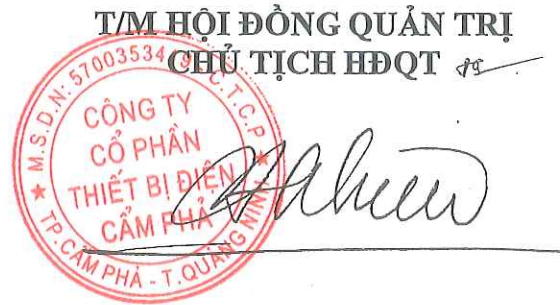 T/M HỘI ĐỒNG QUẢN TRỊ
CHỦ TỊCH HĐQT
M.S.D.N: 5700353419 - C.T.C.P
CÔNG TY
CỔ PHẦN
THIẾT BỊ ĐIỆN
CẨM PHẢ
TP.CẨM PHẢ - T.QUẢNG NINH